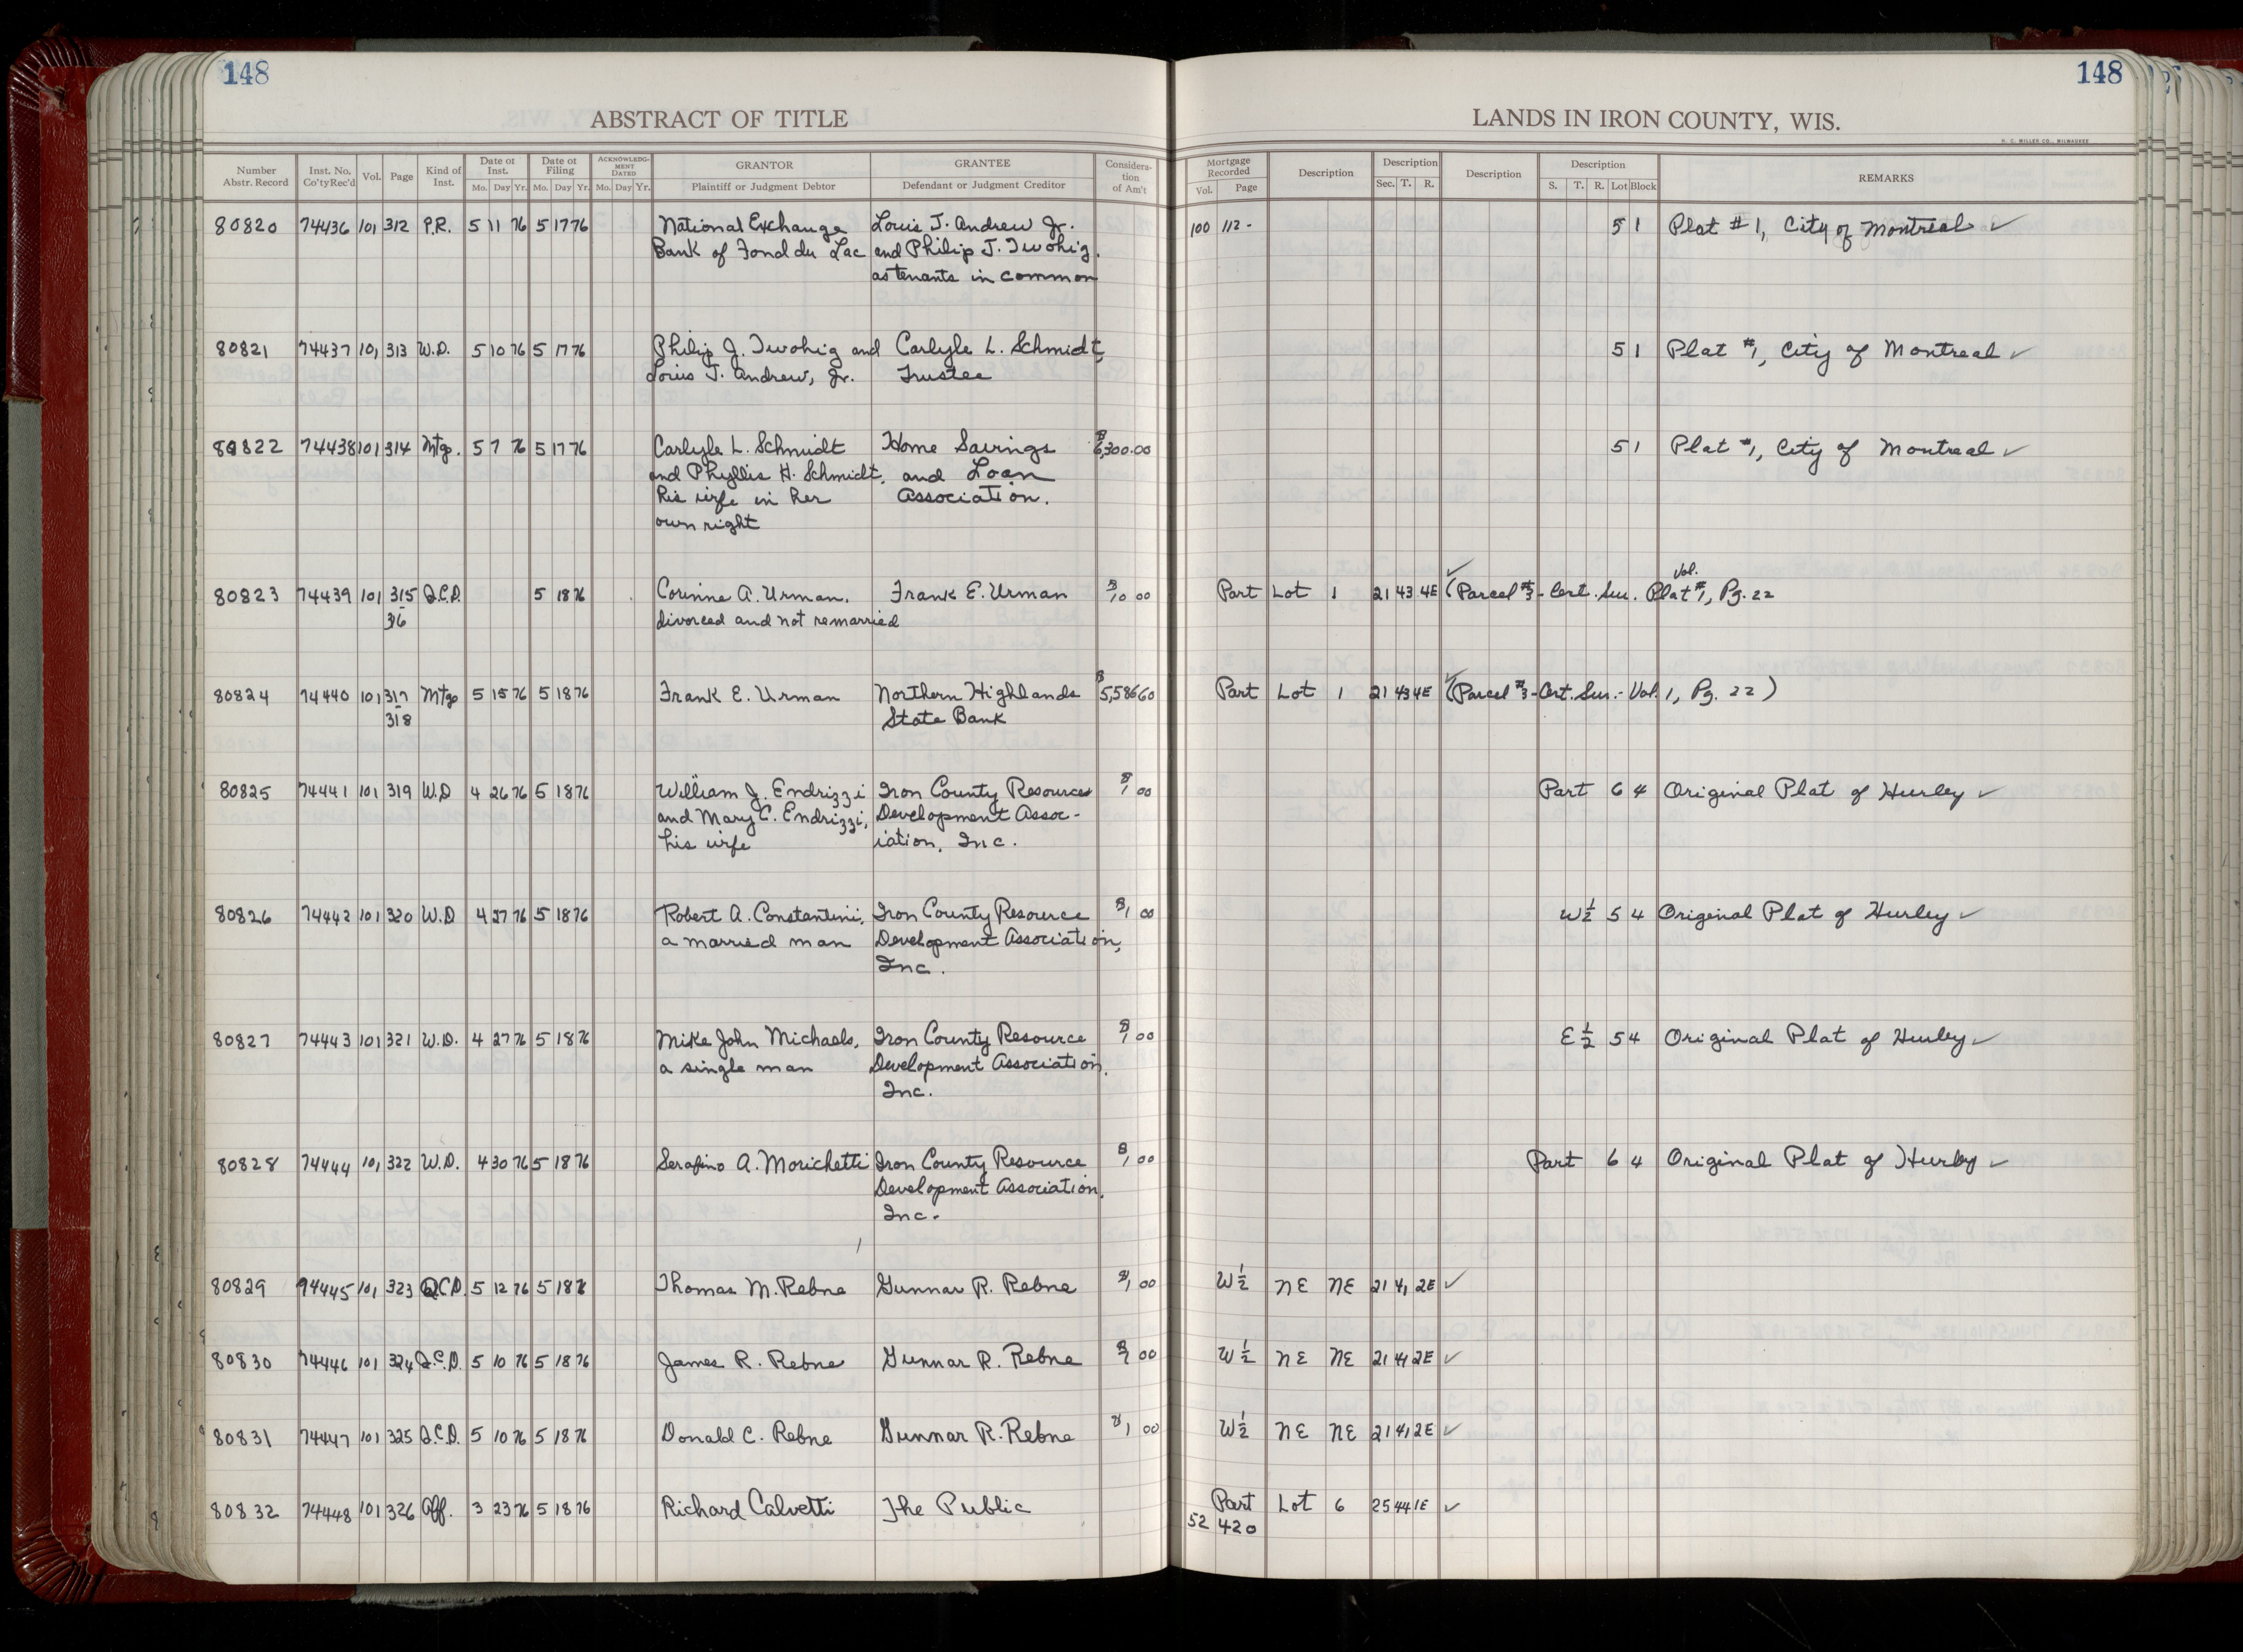 148
148
ABSTRACT OF TITLE
LANDS IN IRON COUNTY, WIS.
H. C. MILLER CO., MILWAUKEE
Number Abstr. Record Inst. No. Co'ty Rec'd Vol. Page Kind of Inst. Date of Inst. Mo. Day Yr. Date of Filing Mo. Day Yr. ACKNOWLEDGMENT DATED Mo. Day Yr. GRANTOR Plaintiff or Judgment Debtor GRANTEE Defendant or Judgment Creditor Consideration of Am't Mortgage Recorded Vol. Page Description Description Sec. T. R. Description Description S. T. R. Lot Block REMARKS
80820 74436 101 312 P.R. 5 11 76 5 17 76 National Exchange Louis J. Andrew Jr. 100 112 - 5 1 Plat #1, City of Montreal ✓
Bank of Fond du Lac and Philip J. Twohig,
as tenants in common
80821 74437 101 313 W.D. 5 10 76 5 17 76 Philip J. Twohig and Carlyle L. Schmidt, 5 1 Plat #1, City of Montreal ✓
Louis J. Andrew, Jr. Trustee
80822 74438 101 314 Mtg. 5 7 76 5 17 76 Carlyle L. Schmidt Home Savings $6,300.00 5 1 Plat #1, City of Montreal ✓
and Phyllis H. Schmidt, and Loan
his wife in her Association.
own right
80823 74439 101 315 Q.C.D. 5 18 76 Corinne A. Urman, Frank E. Urman $10 00 Part Lot 1 21 43 4E ✓(Parcel #3 - Cert. Sur. Plat Vol. #1, Pg. 22
- 316 divorced and not remarried
80824 74440 101 317 Mtg 5 15 76 5 18 76 Frank E. Urman Northern Highlands $5,586 60 Part Lot 1 21 43 4E ✓(Parcel #3 - Cert. Sur. - Vol. 1, Pg. 22)
- 318 State Bank
80825 74441 101 319 W.D 4 26 76 5 18 76 William J. Endrizzi Iron County Resources $1 00 Part 6 4 Original Plat of Hurley ✓
and Mary C. Endrizzi, Development Assoc-
his wife iation, Inc.
80826 74442 101 320 W.D 4 27 76 5 18 76 Robert A. Constantini, Iron County Resource $1 00 W½ 5 4 Original Plat of Hurley ✓
a married man Development Association,
Inc.
80827 74443 101 321 W.D. 4 27 76 5 18 76 Mike John Michaels, Iron County Resource $1 00 E½ 5 4 Original Plat of Hurley ✓
a single man Development Association,
Inc.
80828 74444 101 322 W.D. 4 30 76 5 18 76 Serafino A. Morichetti Iron County Resource $1 00 Part 6 4 Original Plat of Hurley ✓
Development Association,
Inc.
80829 74445 101 323 Q.C.D. 5 12 76 5 18 76 Thomas M. Rebne Gunnar R. Rebne $1 00 W½ NE NE 21 41 2E ✓
80830 74446 101 324 Q.C.D. 5 10 76 5 18 76 James R. Rebne Gunnar R. Rebne $1 00 W½ NE NE 21 41 2E ✓
80831 74447 101 325 Q.C.D. 5 10 76 5 18 76 Donald C. Rebne Gunnar R. Rebne $1 00 W½ NE NE 21 41 2E ✓
80832 74448 101 326 Aff. 3 23 76 5 18 76 Richard Calvetti The Public Part Lot 6 25 44 1E ✓
52 420